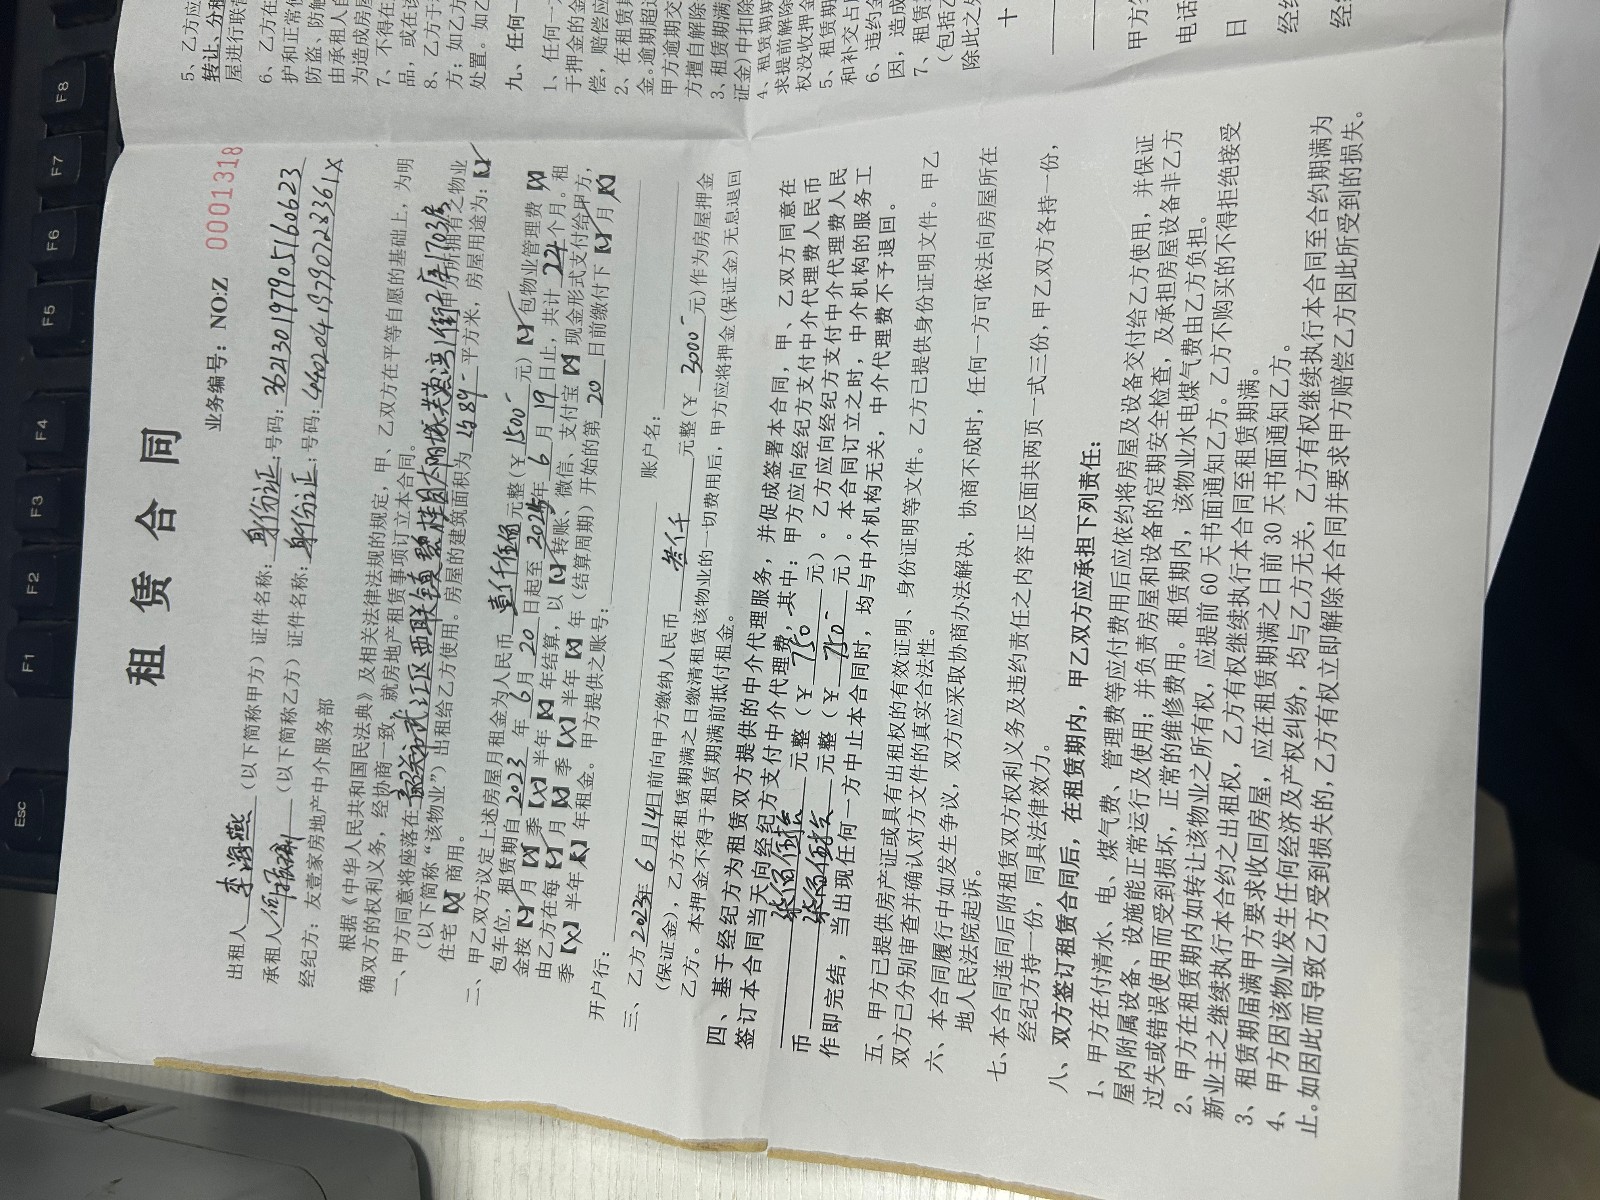 租 赁 合 同
业务编号：NO:Z 0001318
出租人 李海燕 （以下简称甲方）证件名称：身份证；号码：362130197905160623
承租人 （以下简称乙方）证件名称：身份证；号码：44020419790728361X
经纪方：友壹家房地产中介服务部
根据《中华人民共和国民法典》及相关法律法规的规定，甲、乙双方在平等自愿的基础上，为明
确双方的权利义务，经协商一致，就房地产租赁事项订立本合同。
一、甲方同意将座落在 韶关市武江区西联镇碧桂园太阳城芙蓉湾1街2座1703房 甲方所拥有之物业
（以下简称“该物业”）出租给乙方使用。房屋的建筑面积为 平方米，房屋用途为：【✓】
住宅【X】商用。
二、甲乙双方议定上述房屋月租金为人民币 壹仟伍佰 元整（￥1500- 元）【✓】包物业管理费【X】
包车位，租赁期自 2023 年 6 月 20 日起至 2025 年 6 月 19 日止，共计 24 个月。租
金按【✓】月【X】季【X】半年【X】年结算，以【✓】转账、微信、支付宝【X】现金形式支付给甲方，
由乙方在每【✓】月【X】季【X】半年【X】年（结算周期）开始的第 20 日前缴付下【✓】月【X】
季【X】半年【X】年租金。甲方提供之账号：
开户行： 账户名：
三、乙方 2023年 6 月 14 日前向甲方缴纳人民币 叁仟 元整（￥ 3000- 元）作为房屋押金
（保证金），乙方在租赁期满之日缴清租赁该物业的一切费用后，甲方应将押金（保证金）无息退回
乙方。本押金不得于租赁期满前抵付租金。
四、基于经纪方为租赁双方提供的中介代理服务，并促成签署本合同，甲、乙双方同意在
签订本合同当天向经纪方支付中介代理费，其中：甲方应向经纪方支付中介代理费人民币
柒佰伍拾 元整（￥ 750 元）。乙方应向经纪方支付中介代理费人民
币 柒佰伍拾 元整（￥ 750- 元）。本合同订立之时，中介机构的服务工
作即完结，当出现任何一方中止本合同时，均与中介机构无关，中介代理费不予退回。
五、甲方已提供房产证或具有出租权的有效证明、身份证明等文件。乙方已提供身份证明文件。甲乙
双方已分别审查并确认对方文件的真实合法性。
六、本合同履行中如发生争议，双方应采取协商办法解决，协商不成时，任何一方可依法向房屋所在
地人民法院起诉。
七、本合同连同后附租赁双方权利义务及违约责任之内容正反面共两页一式三份，甲乙双方各持一份，
经纪方持一份，同具法律效力。
八、双方签订租赁合同后，在租赁期内，甲乙双方应承担下列责任：
1、甲方在付清水、电、煤气费、管理费等应付费用后应依约将房屋及设备交付给乙方使用，并保证
屋内附属设备、设施能正常运行及使用；并负责房屋和设备的定期安全检查，及承担房屋设备非乙方
过失或错误使用而受到损坏，正常的维修费用。租赁期内，该物业水电煤气费由乙方负担。
2、甲方在租赁期内如转让该物业之所有权，应提前 60 天书面通知乙方。乙方不购买的不得拒绝接受
新业主之继续执行本合约之出租权，乙方有权继续执行本合同至租赁期满。
3、租赁期届满甲方要求收回房屋，应在租赁期满之日前 30 天书面通知乙方。
4、甲方因该物业发生任何经济及产权纠纷，均与乙方无关，乙方有权继续执行本合同至合约期满为
止。如因此而导致乙方受到损失的，乙方有权立即解除本合同并要求甲方赔偿乙方因此所受到的损失。
5、乙方应
转让、分租
屋进行联营
6、乙方在
护和正常使
防盗、防触
由承租人自
为造成房屋
7、不得在
品，或在该
8、乙方于
方；如乙方
处置。如乙
九、任何一
1、任何一
于押金的金
偿，赔偿应
2、在租赁
金。逾期超
甲方逾期交
方擅自解除
3、租赁期满
证金）中扣除
4、租赁期
求提前解除
权没收押金
5、租赁期
和补交占
6、违约金
因，造成
7、租赁
（包括乙
除此之外
十
甲方签
电话
日
经
经
Esc
F1
F2
F3
F4
F5
F6
F7
F8